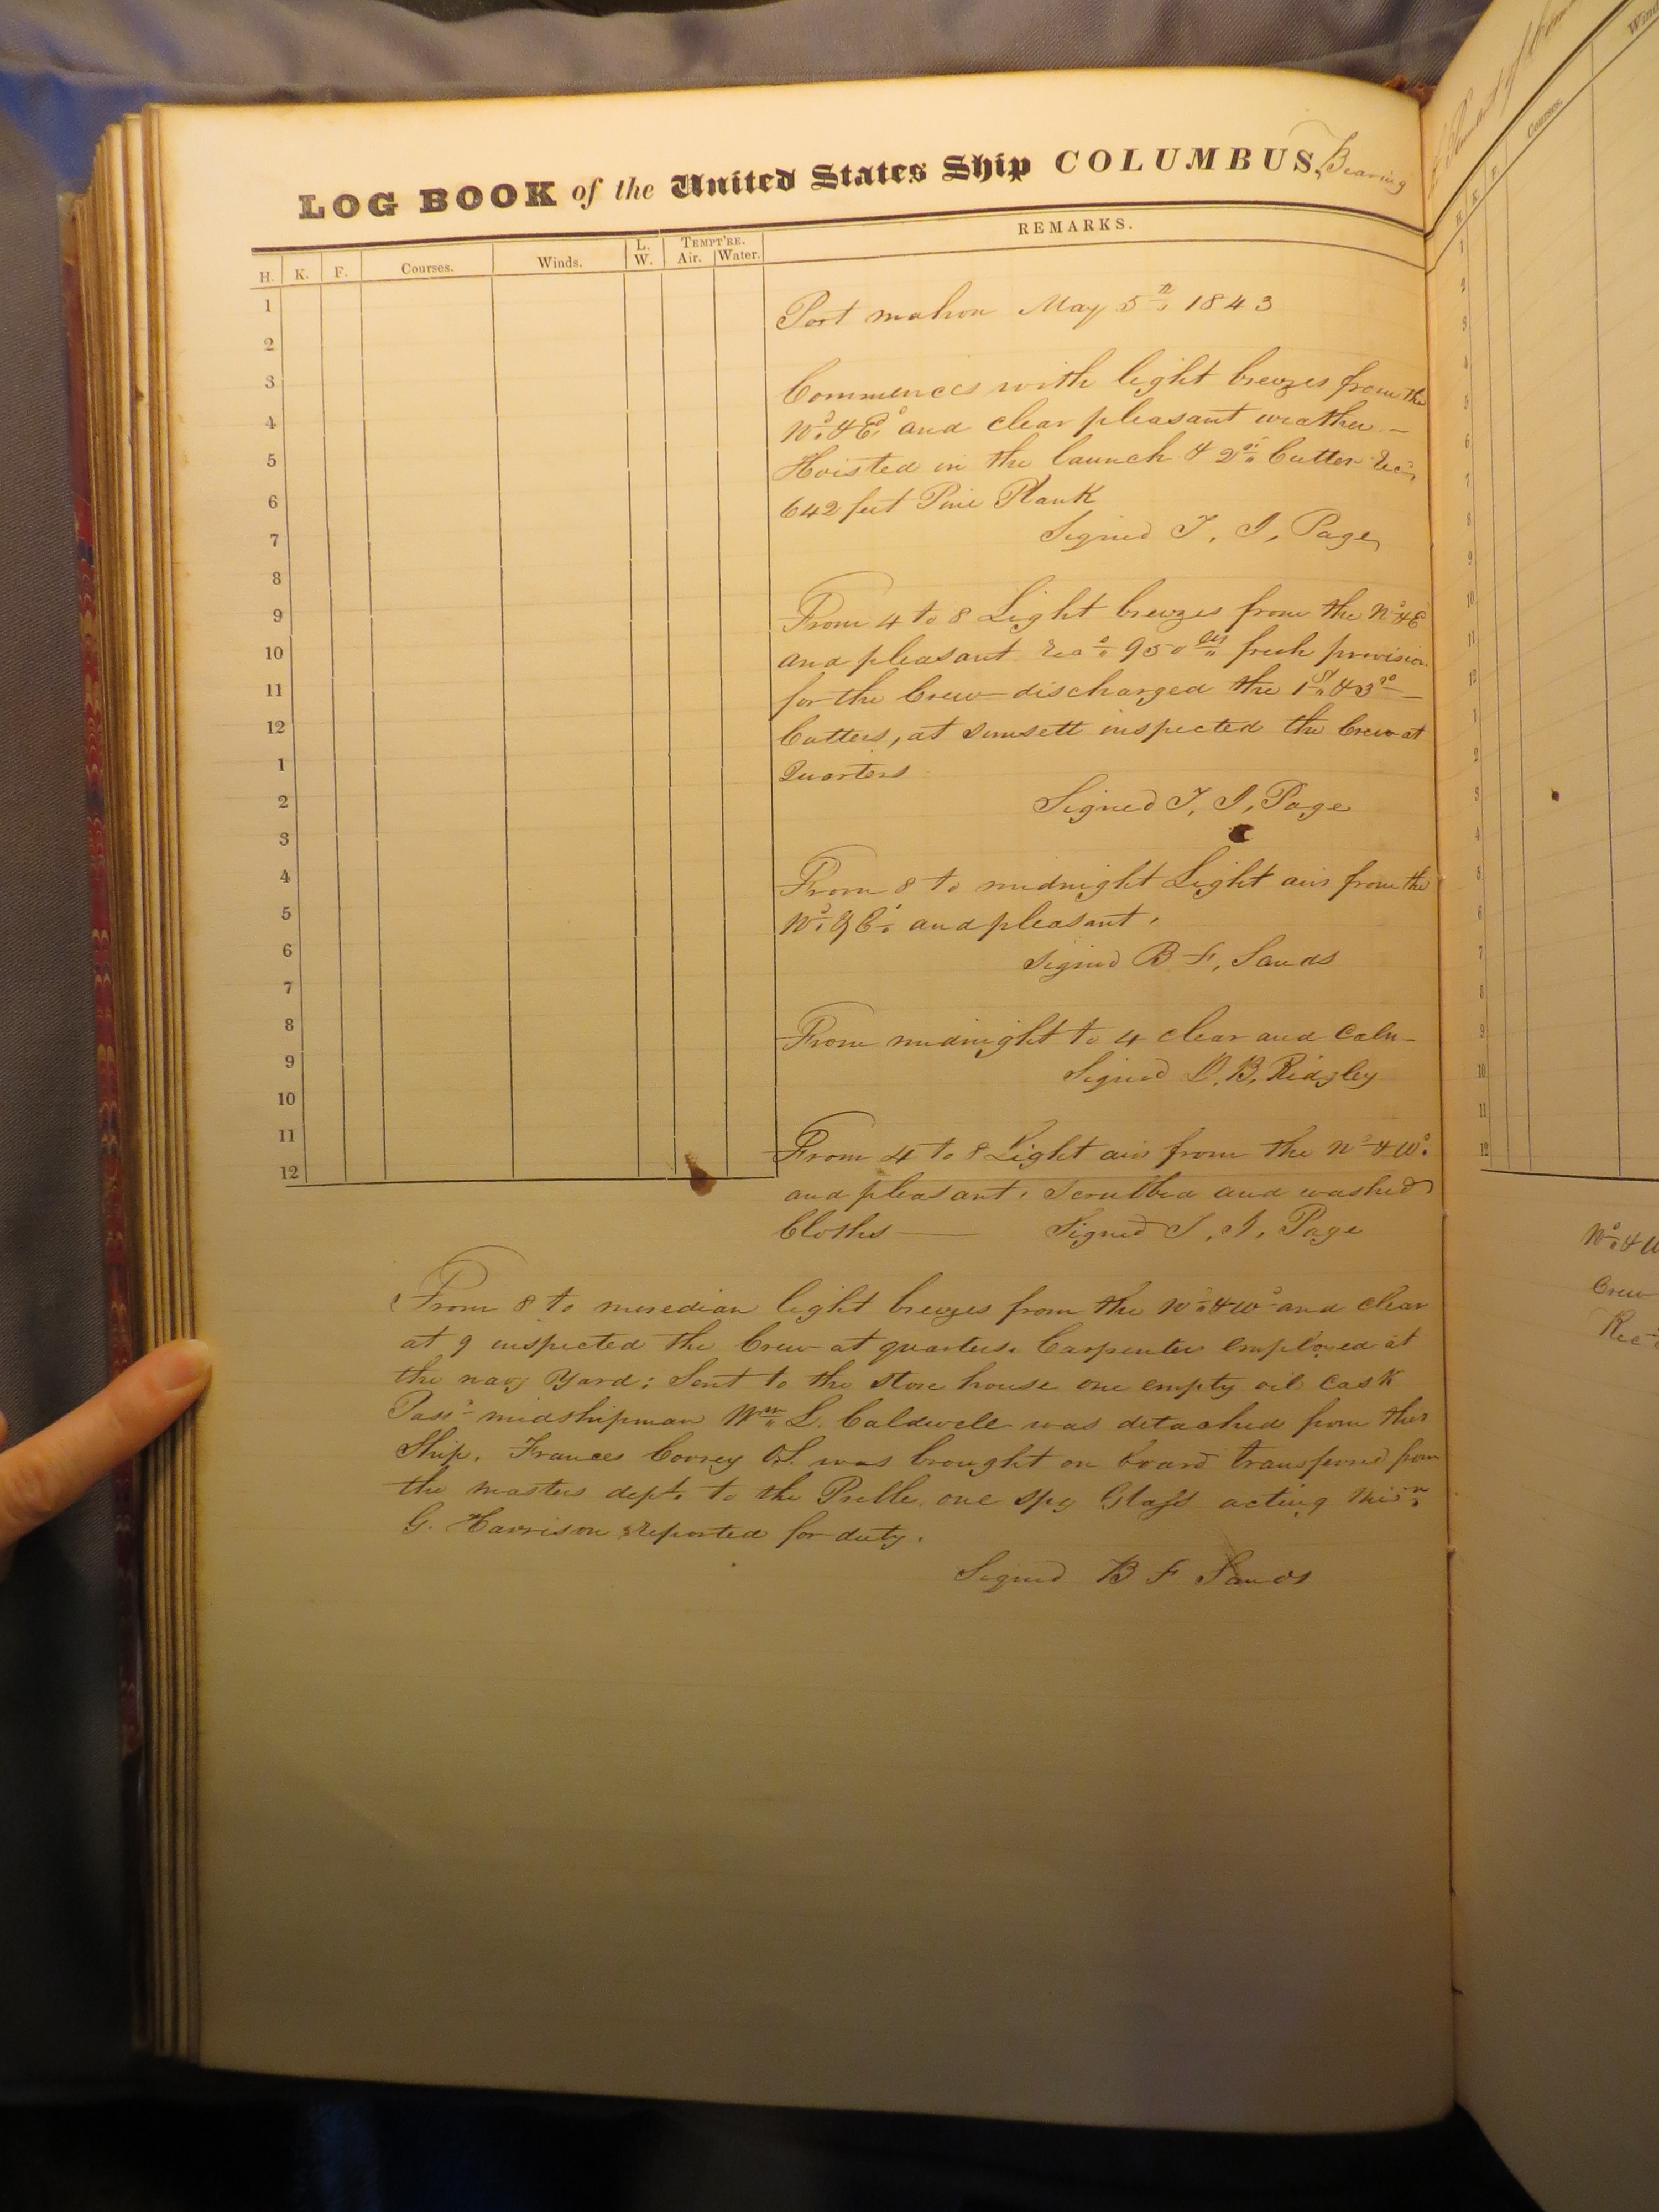 LOG BOOK of the United States Ship COLUMBUS, Bearing
H. K. F. Courses. Winds. L. W. TEMPT'RE. Air. Water. REMARKS.
1
2
3
4
5
6
7
8
9
10
11
12
1
2
3
4
5
6
7
8
9
10
11
12
Port mahon May 5th 1843
Commences with light breezes from the
Nd & Ed and clear pleasant weather —
Hoisted in the launch & 2nd Cutter Recd
642 feet Pine Plank
Signed T. J. Page
From 4 to 8 Light breezes from the Nd & E
and pleasant Recd 950 lbs fresh provision
for the Crew discharged the 1st & 3rd —
Cutters, at sunsett inspected the Crew at
Quarters
Signed T. J. Page
From 8 to midnight Light airs from the
Nd & Ed and pleasant.
Signed B F. Sands
From midnight to 4 clear and Calm
Signed D. B. Ridgley
From 4 to 8 Light airs from the Nd & Wd
and pleasant. Scrubbed and washed
Cloths — Signed T. J. Page
From 8 to meredian light breezes from the Nd & Wd and clear
at 9 inspected the Crew at quarters. Carpenters employed at
the navy Yard; Sent to the store house one empty oil Cask
Passd midshipman Wm L. Caldwell was detached from this
Ship. Frances Correy OS. was brought on board transferred from
the masters dept. to the Preble one spy Glass acting Midn
G. Harrison reported for duty.
Signed B F Sands
Courses.
H K F
1
2
3
4
5
6
7
8
9
10
11
12
1
2
3
4
5
6
7
8
9
10
11
12
Nd & W
Crew
Rec